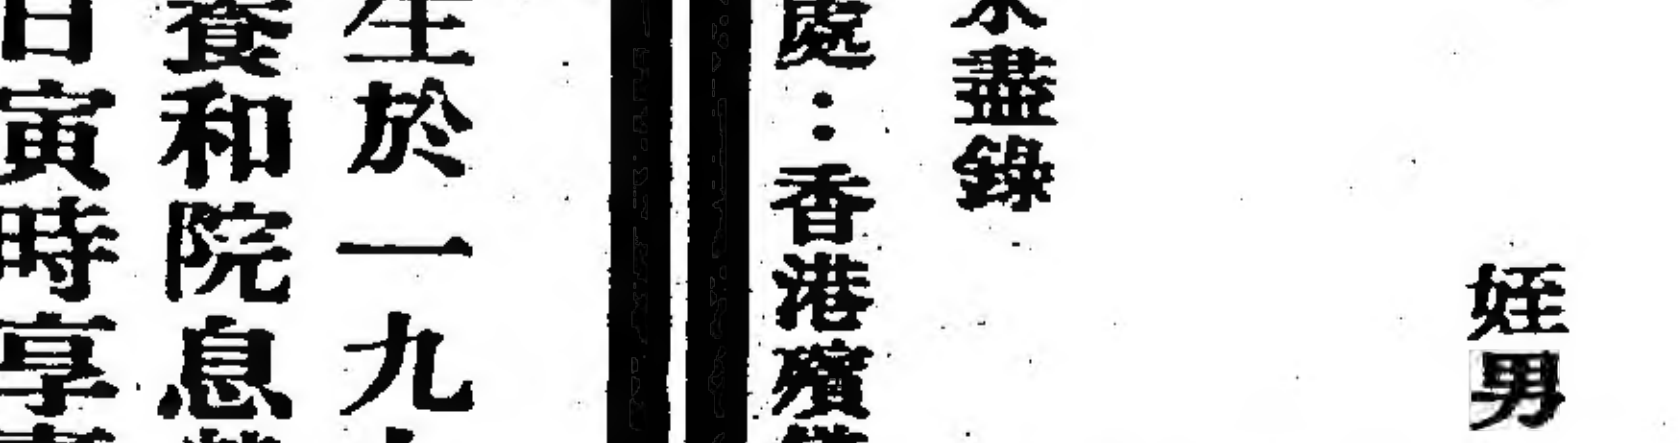 姪男
盡錄
處：香港殯
生於一九
養和院息
日寅時享